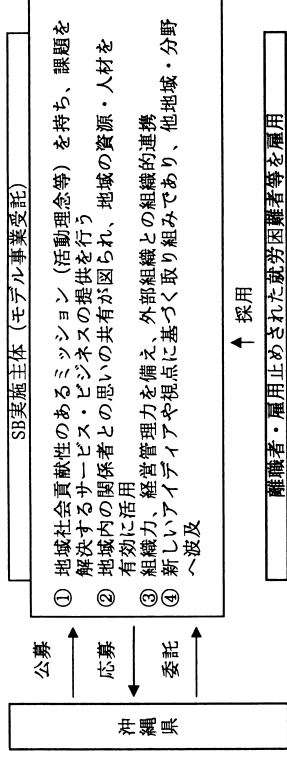 SB実施主体（モデル事業受託）
① 地域社会貢献性のあるミッション（活動理念等）を持ち、課題を
解決するサービス・ビジネスの提供を行う
② 地域内の関係者との思いの共有が図られ、地域の資源・人材を
有効に活用
③ 組織力、経営管理力を備え、外部組織との組織的連携
④ 新しいアイディアや視点に基づく取り組みであり、他地域・分野
へ波及
公募
応募
委託
沖縄県
採用
離職者・雇用止めされた就労困難者等を雇用